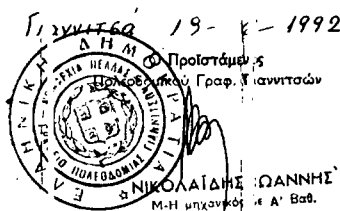 Γιαννιτσά 19- - 1992
Ο Προϊστάμενος
Πολεοδομικού Γραφ. Γιαννιτσών
ΕΛΛΗΝΙΚΗ ΔΗΜΟΚΡΑΤΙΑ
ΠΕΛΛΑΣ
ΠΟΛΕΟΔΟΜΙΑΣ
ΝΙΚΟΛΑΪΔΗΣ ΙΩΑΝΝΗΣ
Μ-Η μηχανικός με Α' Βαθ.